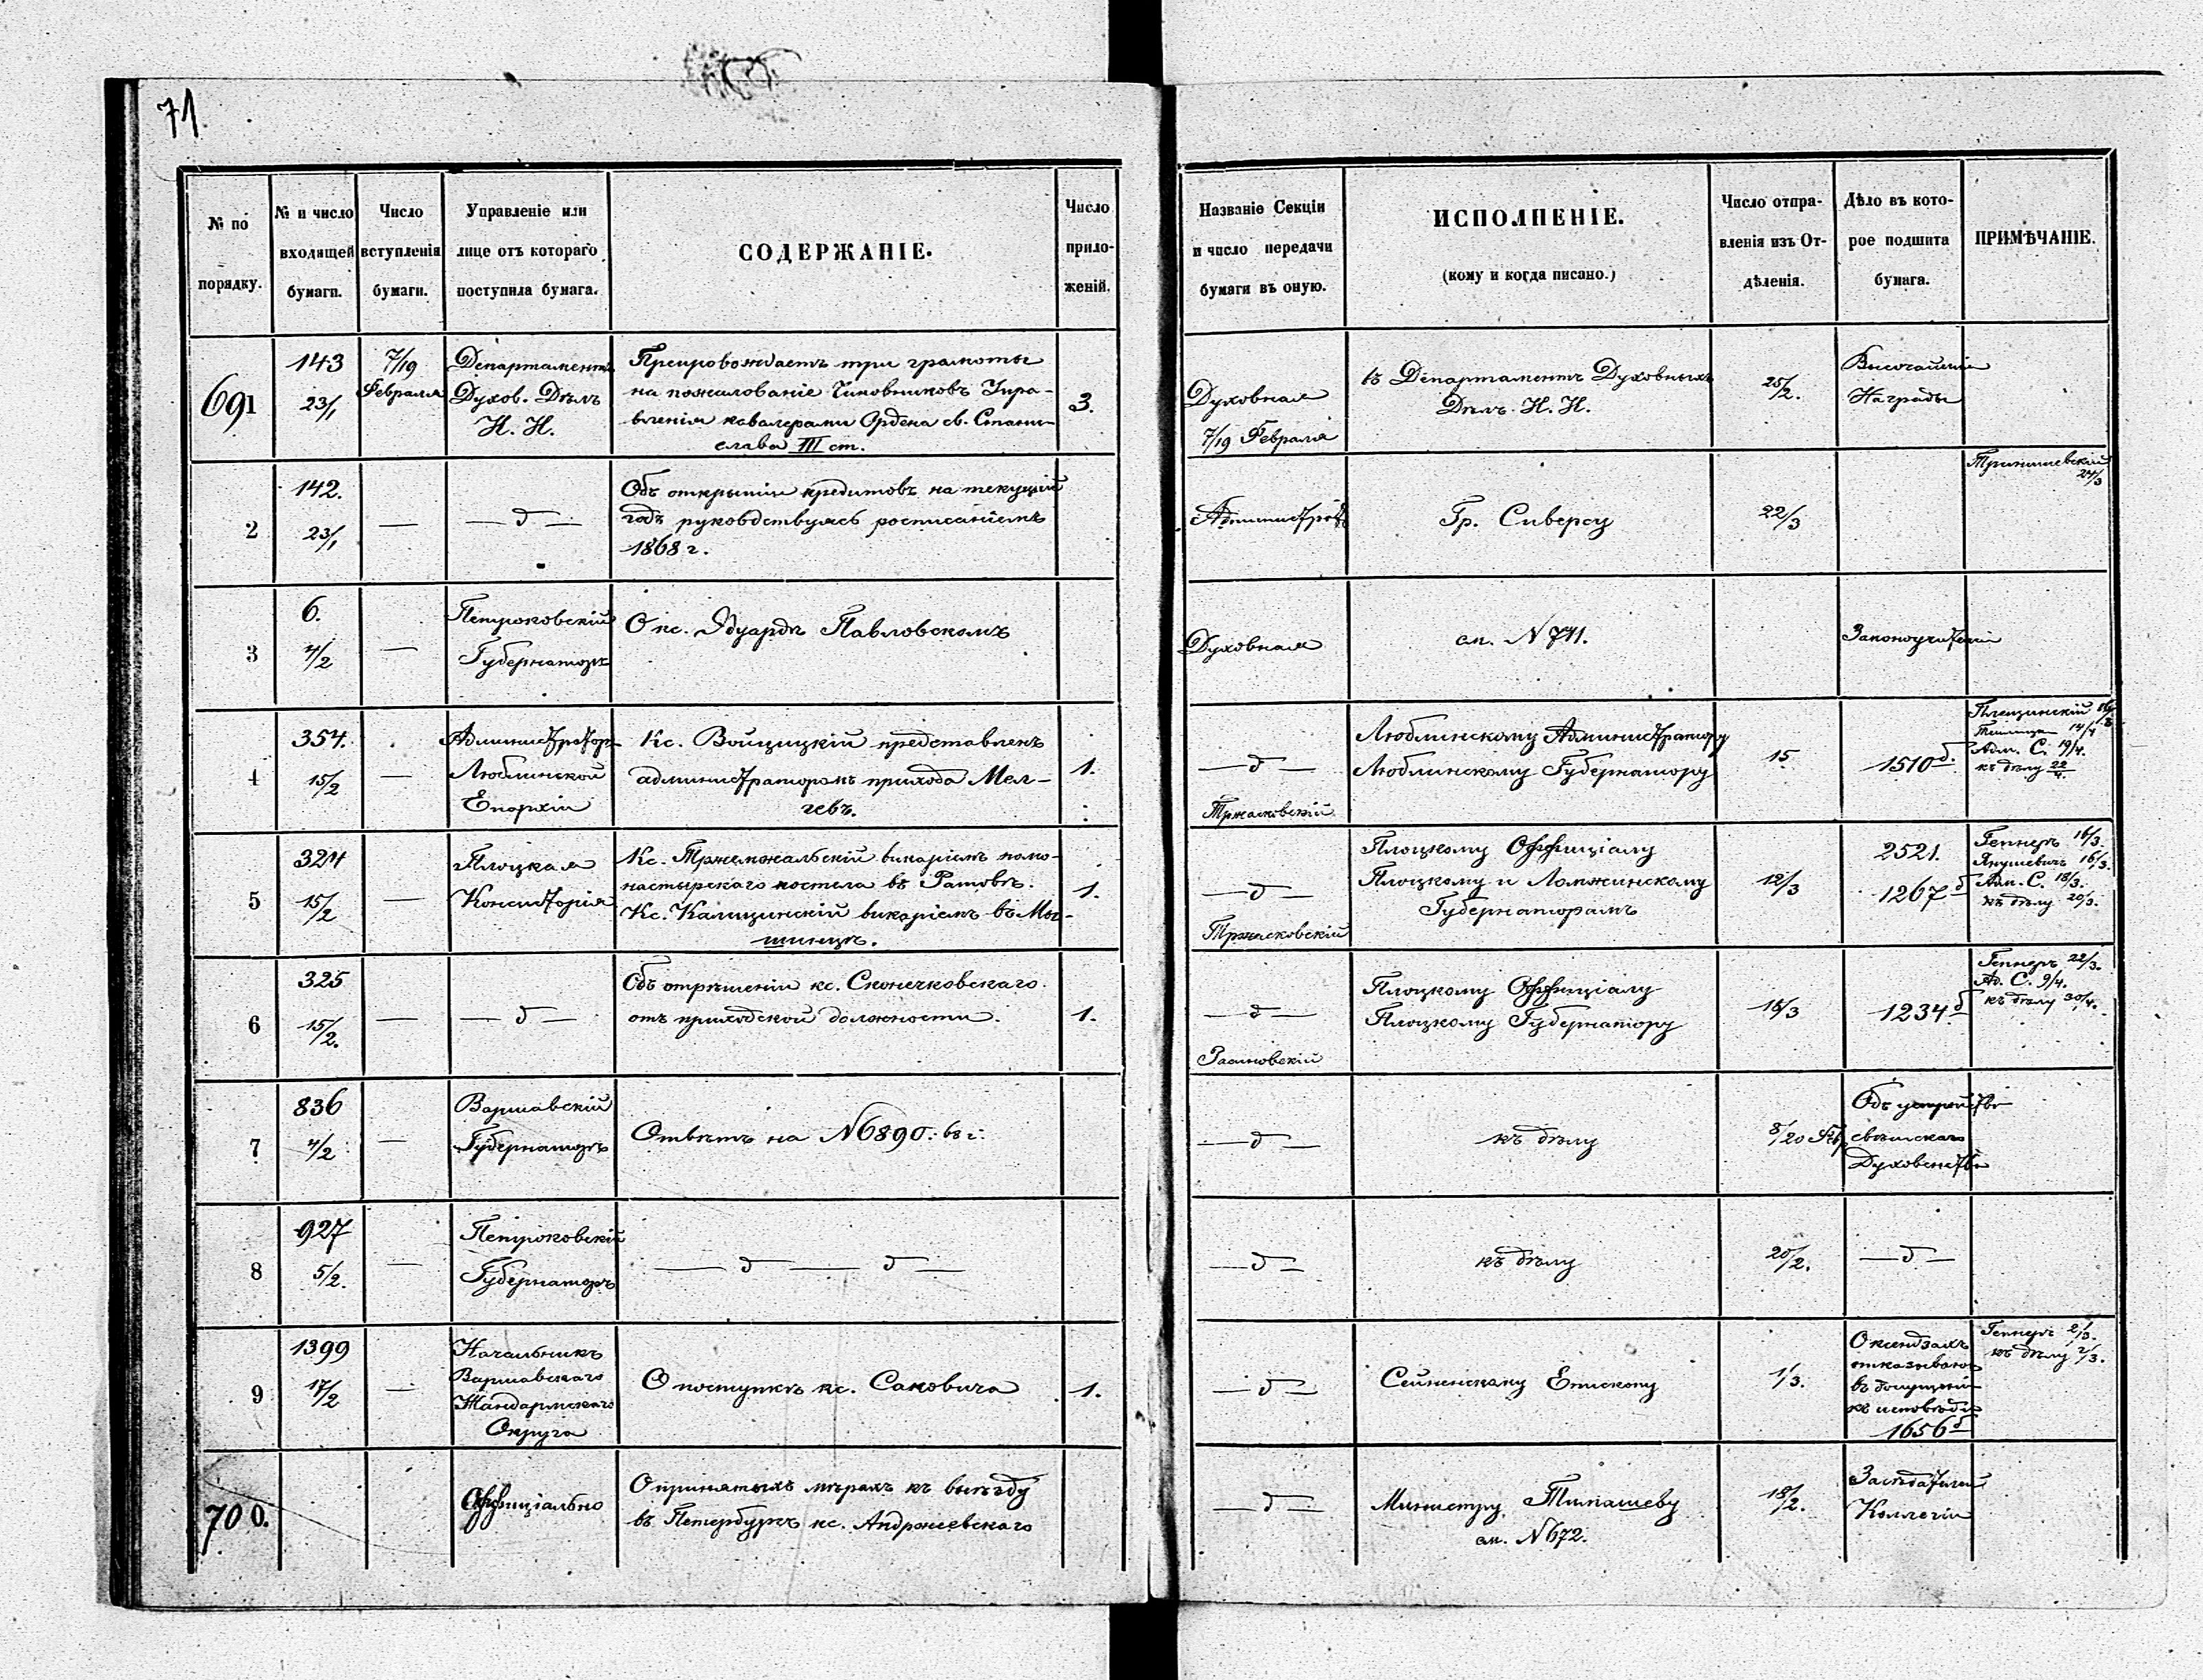 71.
№ по
порядку.
№ и число
входящей
бумаги.
Число
вступленія
бумаги.
Управленіе или
лице отъ котораго
поступила бумага.
СОДЕРЖАНІЕ.
Число
прило-
женій.
Названіе Секціи
и число передачи
бумаги въ оную.
ИСПОЛНЕНІЕ.
(кому и когда писано.)
Число отпра-
вленія изъ От-
дѣленія.
Дѣло въ кото-
рое подшита
бумага.
ПРИМѢЧАНІЕ.
691
143
23/1
7/19
Февраля
Департаментъ
Духов. Дѣлъ
И. И.
Препровождаетъ три грамоты
на пожалованіе Чиновниковъ Упра-
вленія кавалерами Ордена св. Стани-
слава III ст.
3.
Духовная
7/19 Февраля
въ Департаментъ Духовныхъ
Дѣлъ И. И.
25/2.
Высочайшіе
Награды
2
142.
23/1
—
— д —
Объ открытіи кредитовъ на текущій
годъ руководствуясь росписаніемъ
1868 г.
Гр. Сиверсу
22/3
24/3
3
6.
4/2
—
Петроковскій
Губернаторъ
О кс. Эдуардѣ Павловскомъ
Духовная
см. N 741.
Законоучители
4
354.
15/2
—
Администраторъ
Люблинской
Епархіи
Кс. Войцицкій представленъ
администраторомъ прихода Мел-
гевъ.
1.
— д —
Тржасковскій
Люблинскому Администратору
Люблинскому Губернатору
15
1510 б.
14/4
Адм. С. 19/4.
къ дѣлу 22/4.
5
324
15/2
—
Плоцкая
Консисторія
Кс. Тржемжальскій викаріемъ помо-
настырскаго костела въ Ратовѣ.
Кс. Калишинскій викаріемъ въ Мы-
шинцѣ.
1.
— д —
Тржасковскій
Плоцкому Оффиціалу
Плоцкому и Ломжинскому
Губернаторамъ
12/3
2521.
1267 б
Геппнеръ 16/3.
Янушевичъ 16/3.
Адм. С. 18/3.
къ дѣлу 20/3.
6
325
15/2.
—
— д —
Объ отрѣшеніи кс. Сконечковскаго
отъ приходской должности.
1.
— д —
Плоцкому Оффиціалу
Плоцкому Губернатору
15/3
1234 б
Геппнеръ 22/3.
Ад. С. 9/4.
къ дѣлу 30/4.
7
836
4/2
—
Варшавскій
Губернаторъ
Отвѣтъ на N 6890: 68 г.
— д —
къ дѣлу
8/20 Фев
Объ устройствѣ
свѣтскаго
Духовенства
8
927
5/2.
—
Петроковскій
Губернаторъ
— д — д —
— д —
къ дѣлу
20/2.
— д —
9
1399
17/2
—
Начальникъ
Варшавскаго
Жандармскаго
Округа
О поступкѣ кс. Саковича
1.
— д —
Сейненскому Епископу
1/3.
О ксендзахъ
въ допущеніи
къ исповѣди
1656 б
Геппнеръ 2/3.
къ дѣлу 2/3.
700.
Оффиціально
О принятыхъ мѣрахъ къ выѣзду
въ Петербургъ кс. Андржеевскаго
— д —
Министру Тимашеву
см. N 672.
18/2.
Засѣдателей
Коллегіи